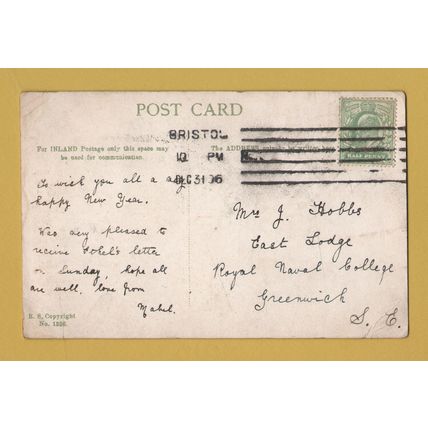 POST CARD
BRISTOL
10 PM
DEC 31 06
HALF PENNY
For INLAND Postage only this space may
be used for communication.
The ADDRESS
To wish you all a
happy New Year.
Was very pleased to
receive Ethel's letter
on Sunday, hope all
are well, love from
Mabel.
Mrs J. Hobbs
East Lodge
Royal Naval College
Greenwich
S. E.
R. S. Copyright
No. 1336.